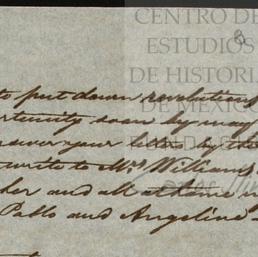 CENTRO DE
ESTUDIOS
8
DE HISTORIA
DE MEXICO
to put down revolutions
ortunity soon by may
answer your letter by the
write to Mrs Williams
her and all at home
Pablo and Angelina